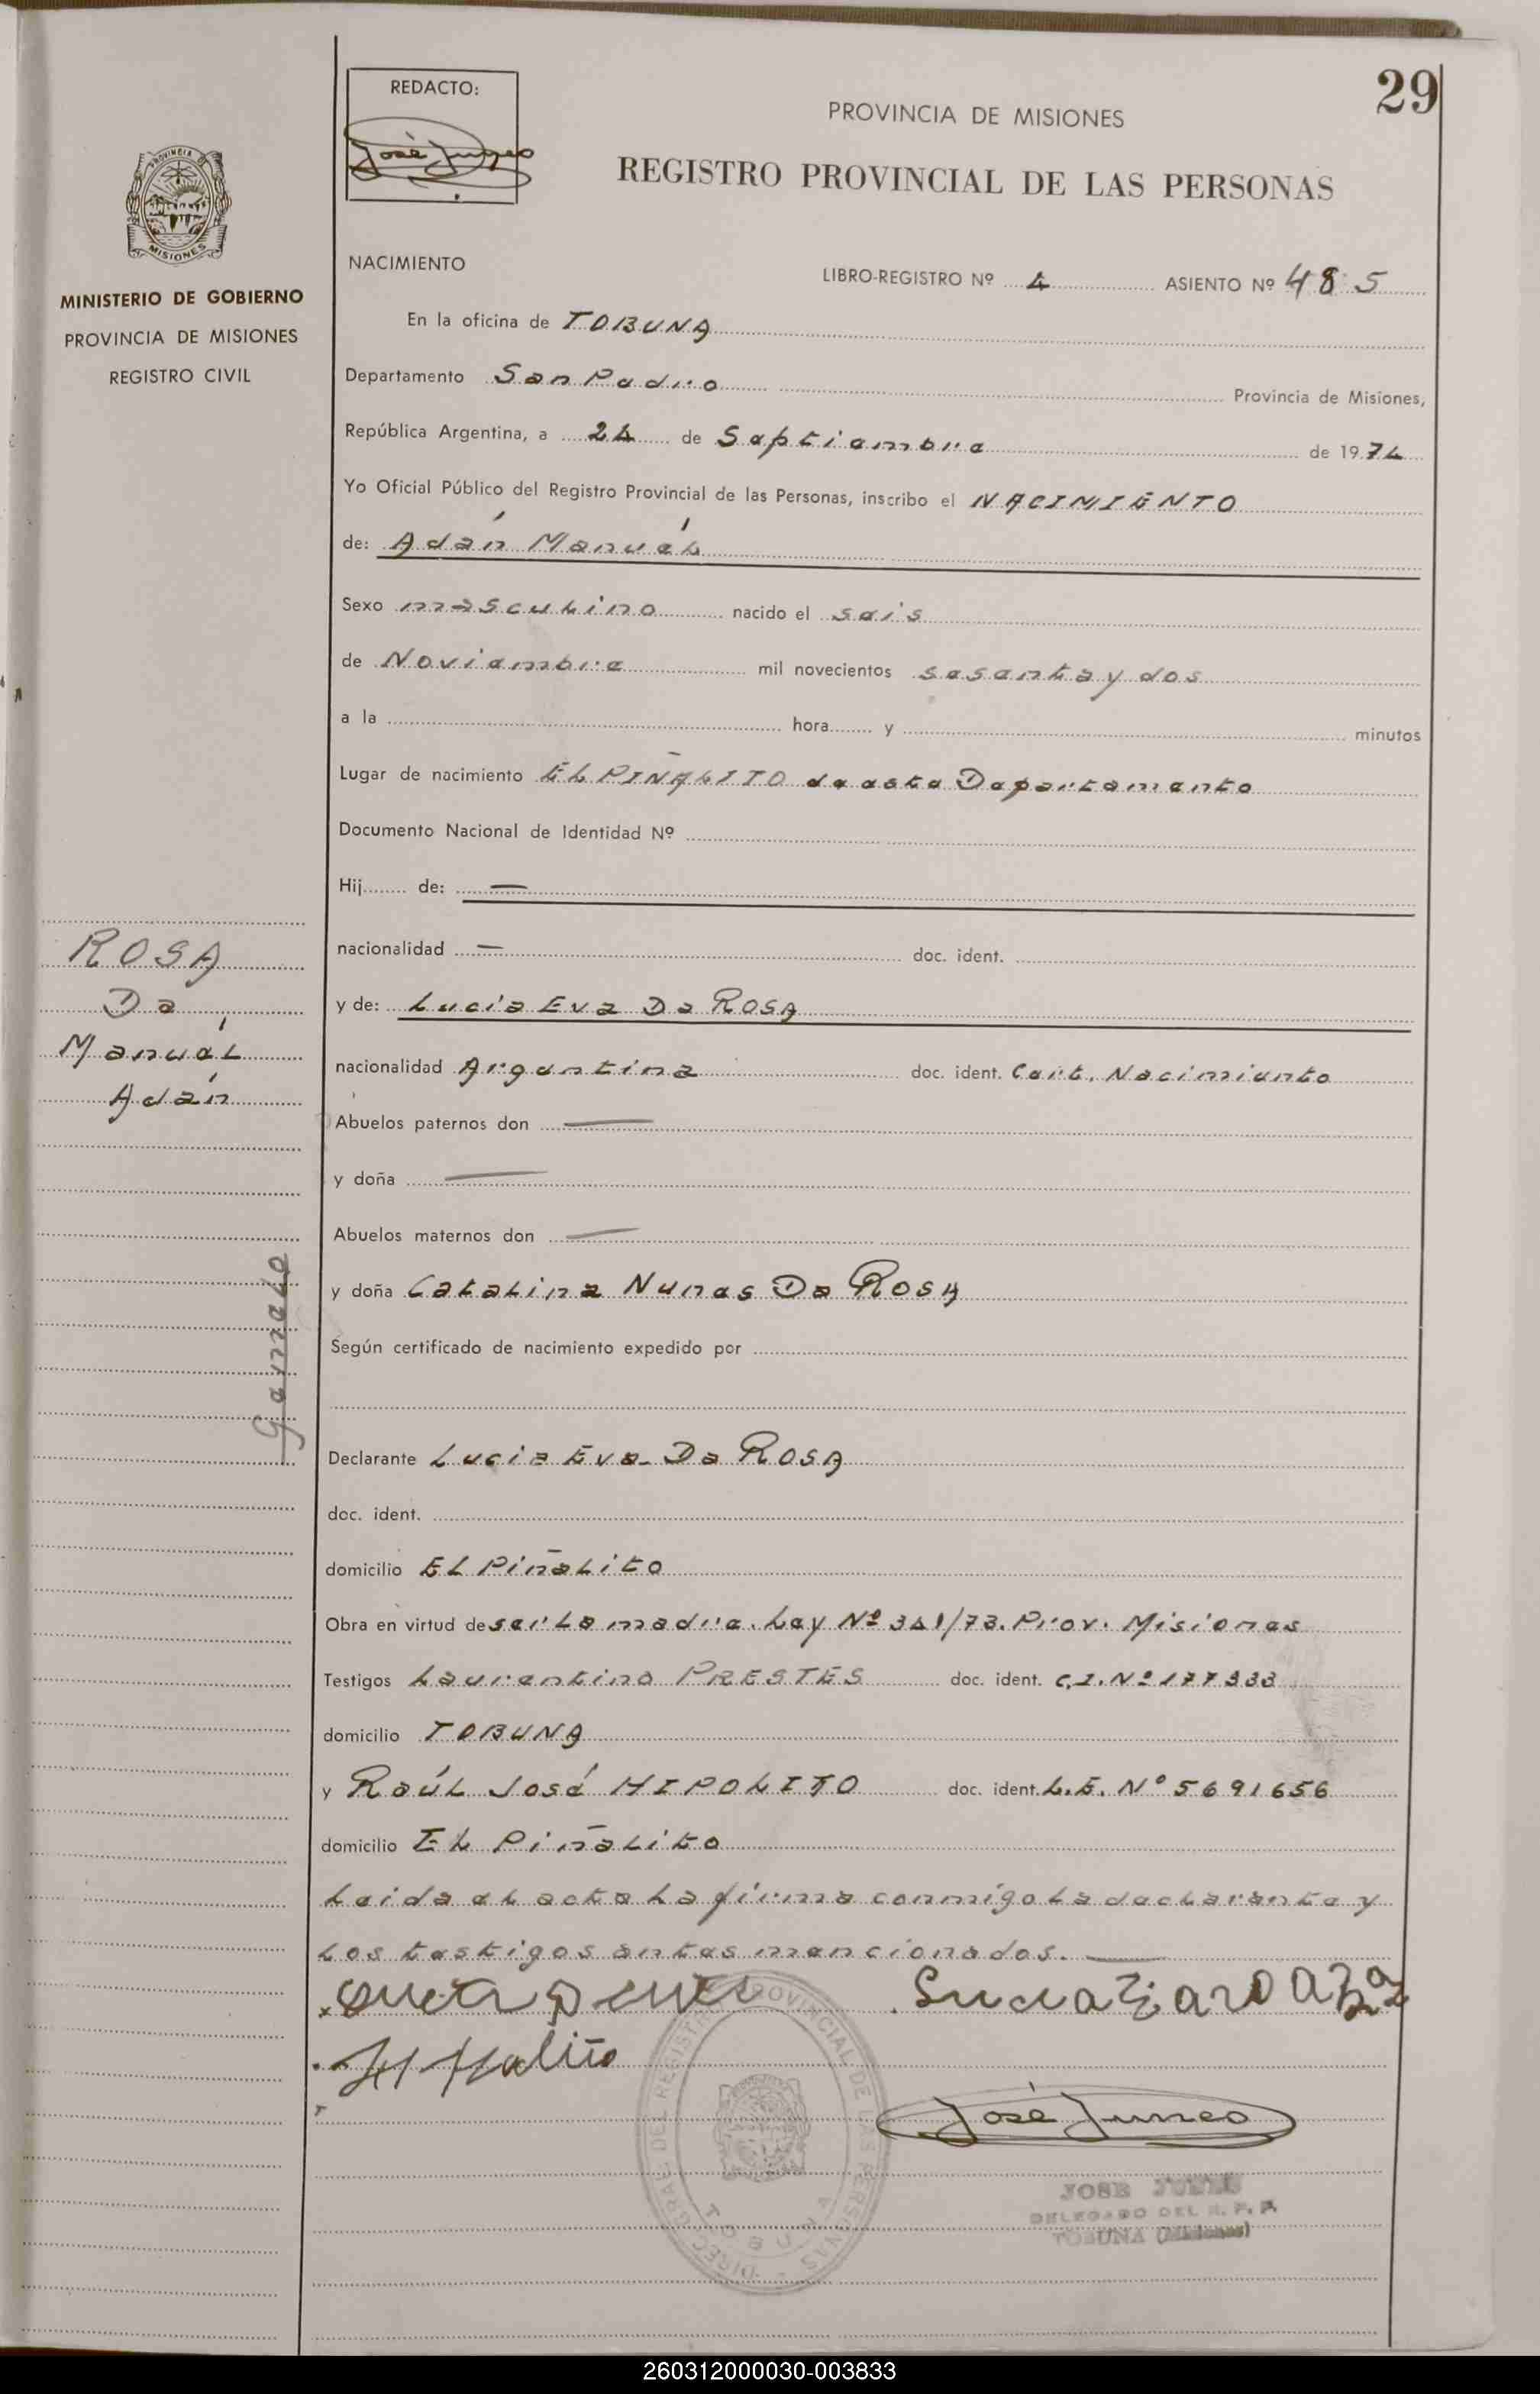 29
REDACTO:
José Juneo
PROVINCIA DE MISIONES
REGISTRO PROVINCIAL DE LAS PERSONAS
PROVINCIA DE
MISIONES
MINISTERIO DE GOBIERNO
PROVINCIA DE MISIONES
REGISTRO CIVIL
NACIMIENTO
LIBRO-REGISTRO Nº 4 ASIENTO Nº 485
En la oficina de TOBUNA
Departamento San Pedro Provincia de Misiones,
República Argentina, a 24 de Septiembre de 1974
Yo Oficial Público del Registro Provincial de las Personas, inscribo el NACIMIENTO
de: Adán Manuél
Sexo masculino nacido el seis
de Noviembre mil novecientos sesenta y dos
a la hora y minutos
Lugar de nacimiento EL PIÑALITO de este Departamento
Documento Nacional de Identidad Nº
Hij de: —
nacionalidad — doc. ident.
y de: Lucía Eva Da ROSA
nacionalidad Argentina doc. ident. Cert. Nacimiento
Abuelos paternos don —
y doña —
Abuelos maternos don —
y doña Catalina Nunes Da ROSA
Según certificado de nacimiento expedido por
Declarante Lucia Eva Da ROSA
doc. ident.
domicilio EL Piñalito
Obra en virtud de ser la madre. Ley Nº 341/73. Prov. Misiones
Testigos Laurentino PRESTES doc. ident. C.I. Nº 177333
domicilio TOBUNA
y Raúl José HIPOLITO doc. ident. L.E. Nº 5691656
domicilio EL Piñalito
Leida el acta la firma conmigo la declarante y
los testigos antes mencionados. —
José Juneo
DIREC. GRAL. DEL REGISTRO PROVINCIAL DE LAS PERSONAS
TOBUNA
JOSE
DELEGADO DEL R. P. P.
TOBUNA (Misiones)
ROSA
Da
Manuél
Adán
260312000030-003833